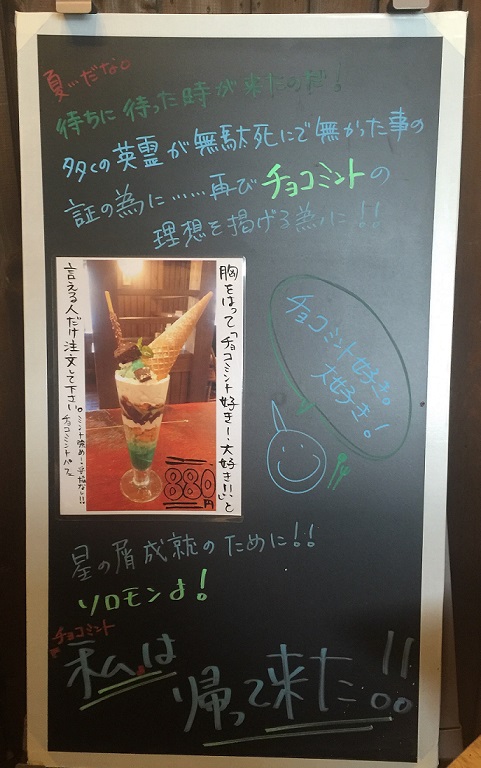 夏…だな。
待ちに待った時が来たのだ！
多くの英霊が無駄死にで無かった事の
証の為に……再びチョコミントの
理想を掲げる為に！！
胸をはって「チョコミント好きー、大好き!!」と
言える人だけ注文して下さい。
ミント強め！手加減なし!!
チョコミントパフェ
880円
チョコミント好き。
大好き！
星の屑成就のために！！
ソロモンよ！
チョコミント
私は
帰って来た!!